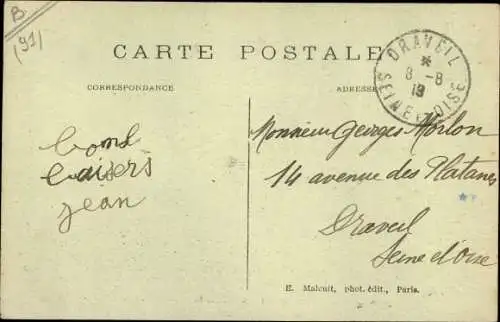 B
(91)
CARTE POSTALE
CORRESPONDANCE
ADRESSE
DRAVEIL
*
8 -8
SEINE-ET-OISE
bons
baisers
jean
Monsieur Georges Morlon
14 avenue des Platanes
Draveil
Seine d'Oise
E. Malcuit, phot. édit., Paris.